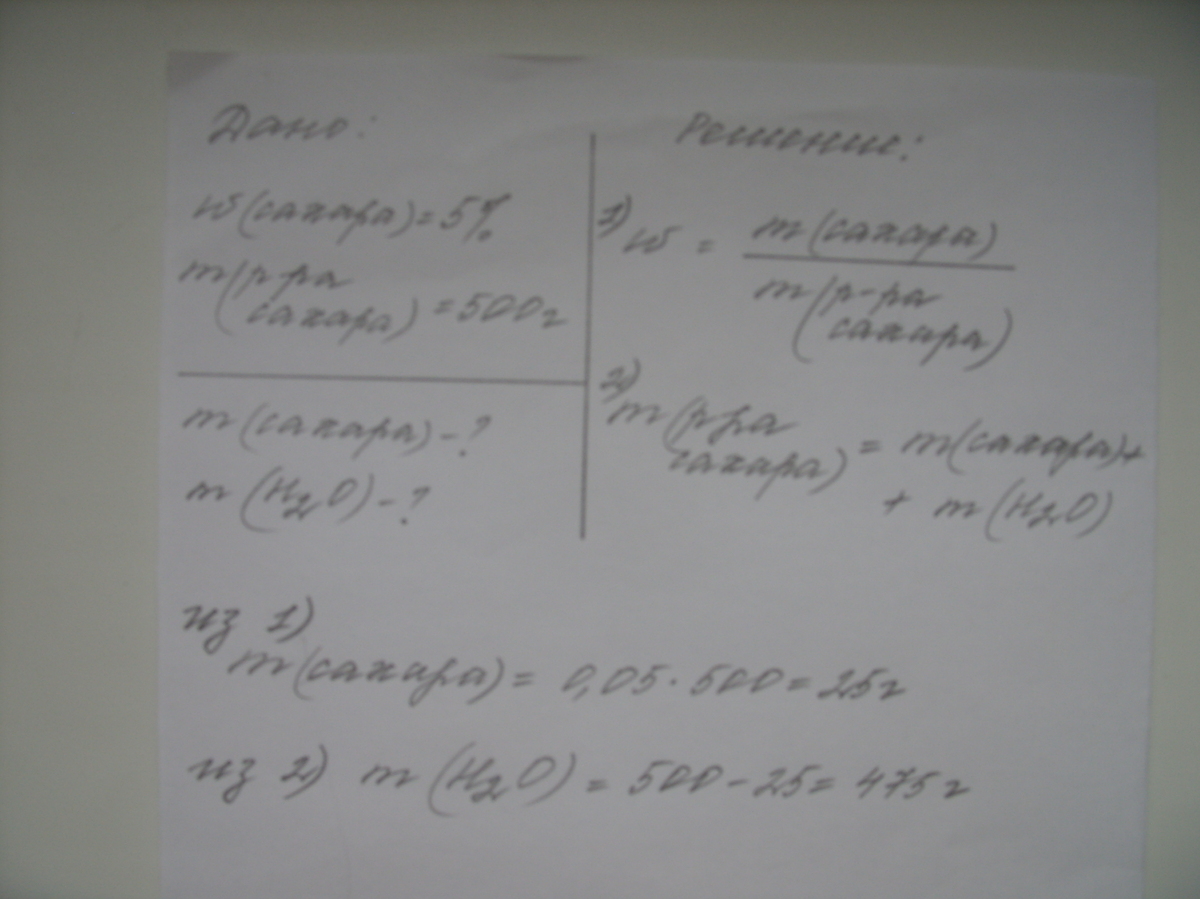 Дано:
w(сахара)=5%
m(р-ра
сахара)=500г
m(сахара)-?
m(H₂O)-?
Решение:
1) w = m(сахара)
m(р-ра
сахара)
2) m(р-ра
сахара) = m(сахара)+
+ m(H₂O)
из 1)
m(сахара)= 0,05·500=25г
из 2) m(H₂O)=500-25=475г